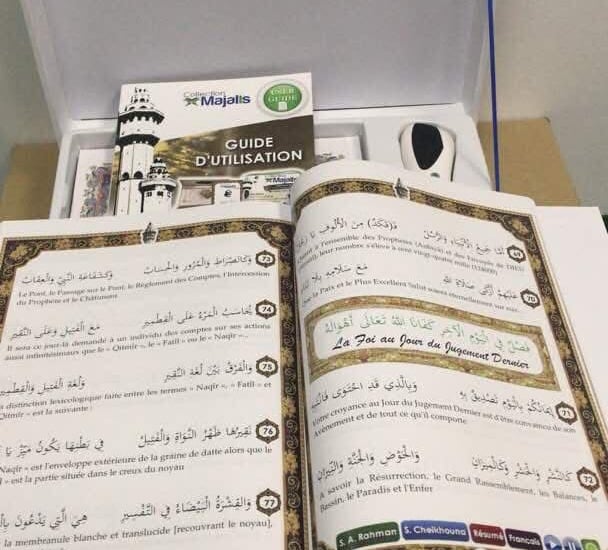 Collection
Majalis
USER
GUIDE
GUIDE
D'UTILISATION
Majalis
أَمَّا جَمِيعُ الْأَنْبِيَاءِ وَالرُّسُلْ
مِنَ الْأُلُوفِ
69
à l'ensemble des Prophètes (Anbiyâ) et des Envoyés de DIEU
leur nombre s'élève à cent vingt-quatre mille (124000)
عَلَيْهِمُ أَزْكَى صَلَاةِ اللَّهِ
مَعَ سَلَامِهِ بِلَا
70
la Paix et le Plus Excellent Salut soient éternellement sur
فَصْلٌ فِي الْيَوْمِ الْآخِرِ كَفَانَا اللَّهُ تَعَالَى أَهْوَالَهُ
La Foi au Jour du Jugement Dernier
إِيمَانُكُمْ بِالْيَوْمِ تَصْدِيقٌ
وَبِالَّذِي قَدِ احْتَوَى
71
Votre croyance au Jour du Jugement Dernier est d'être convaincu de son
Avènement et de tout ce qu'il comporte
كَالنَّشْرِ وَالْحَشْرِ وَكَالْمِيزَانِ
وَالْحَوْضِ وَالْجَنَّةِ وَالنِّيرَانِ
72
A savoir la Résurrection, le Grand Rassemblement, les Balances, le
Bassin, le Paradis et l'Enfer
S. A. Rahman
S. Cheikhouna
Résumé
Français
وَكَالصِّرَاطِ وَالْمُرُورِ وَالْحِسَابْ
وَكَشَفَاعَةِ النَّبِيْ وَالْعِقَابْ
73
Le Pont, le Passage sur le Pont, le Règlement des Comptes, l'Intercession
du Prophète et le Châtiment
يُحَاسَبُ الْمَرْءُ عَلَى الْقِطْمِيرِ
مَعَ الْفَتِيلِ وَعَلَى النَّقِيرِ
74
Il sera ce jour-là demandé à un individu des comptes sur ses actions
aussi infinitésimaux que le « Qitmîr », le « Fatîl » ou le « Naqîr ».
وَالْفَرْقُ بَيْنَ لُغَةِ النَّقِيرِ
وَلُغَةِ الْفَتِيلِ وَالْقِطْمِيرِ
75
distinction lexicologique faite entre les termes « Naqîr », « Fatîl » et
Qitmîr » est la suivante :
نَقِيرُهَا ظَهْرُ النَّوَاةِ وَالْفَتِيلْ
فِي بَطْنِهَا يَكُونُ
76
Naqîr » est l'enveloppe extérieure de la graine de datte alors que le
» est la partie située dans le creux du noyau
وَالْقِشْرَةُ الْبَيْضَاءُ فِي التَّفْسِيرِ
هِيَ الَّتِي يَدْعُونَ
77
la membranule blanche et translucide [recouvrant le noyau],